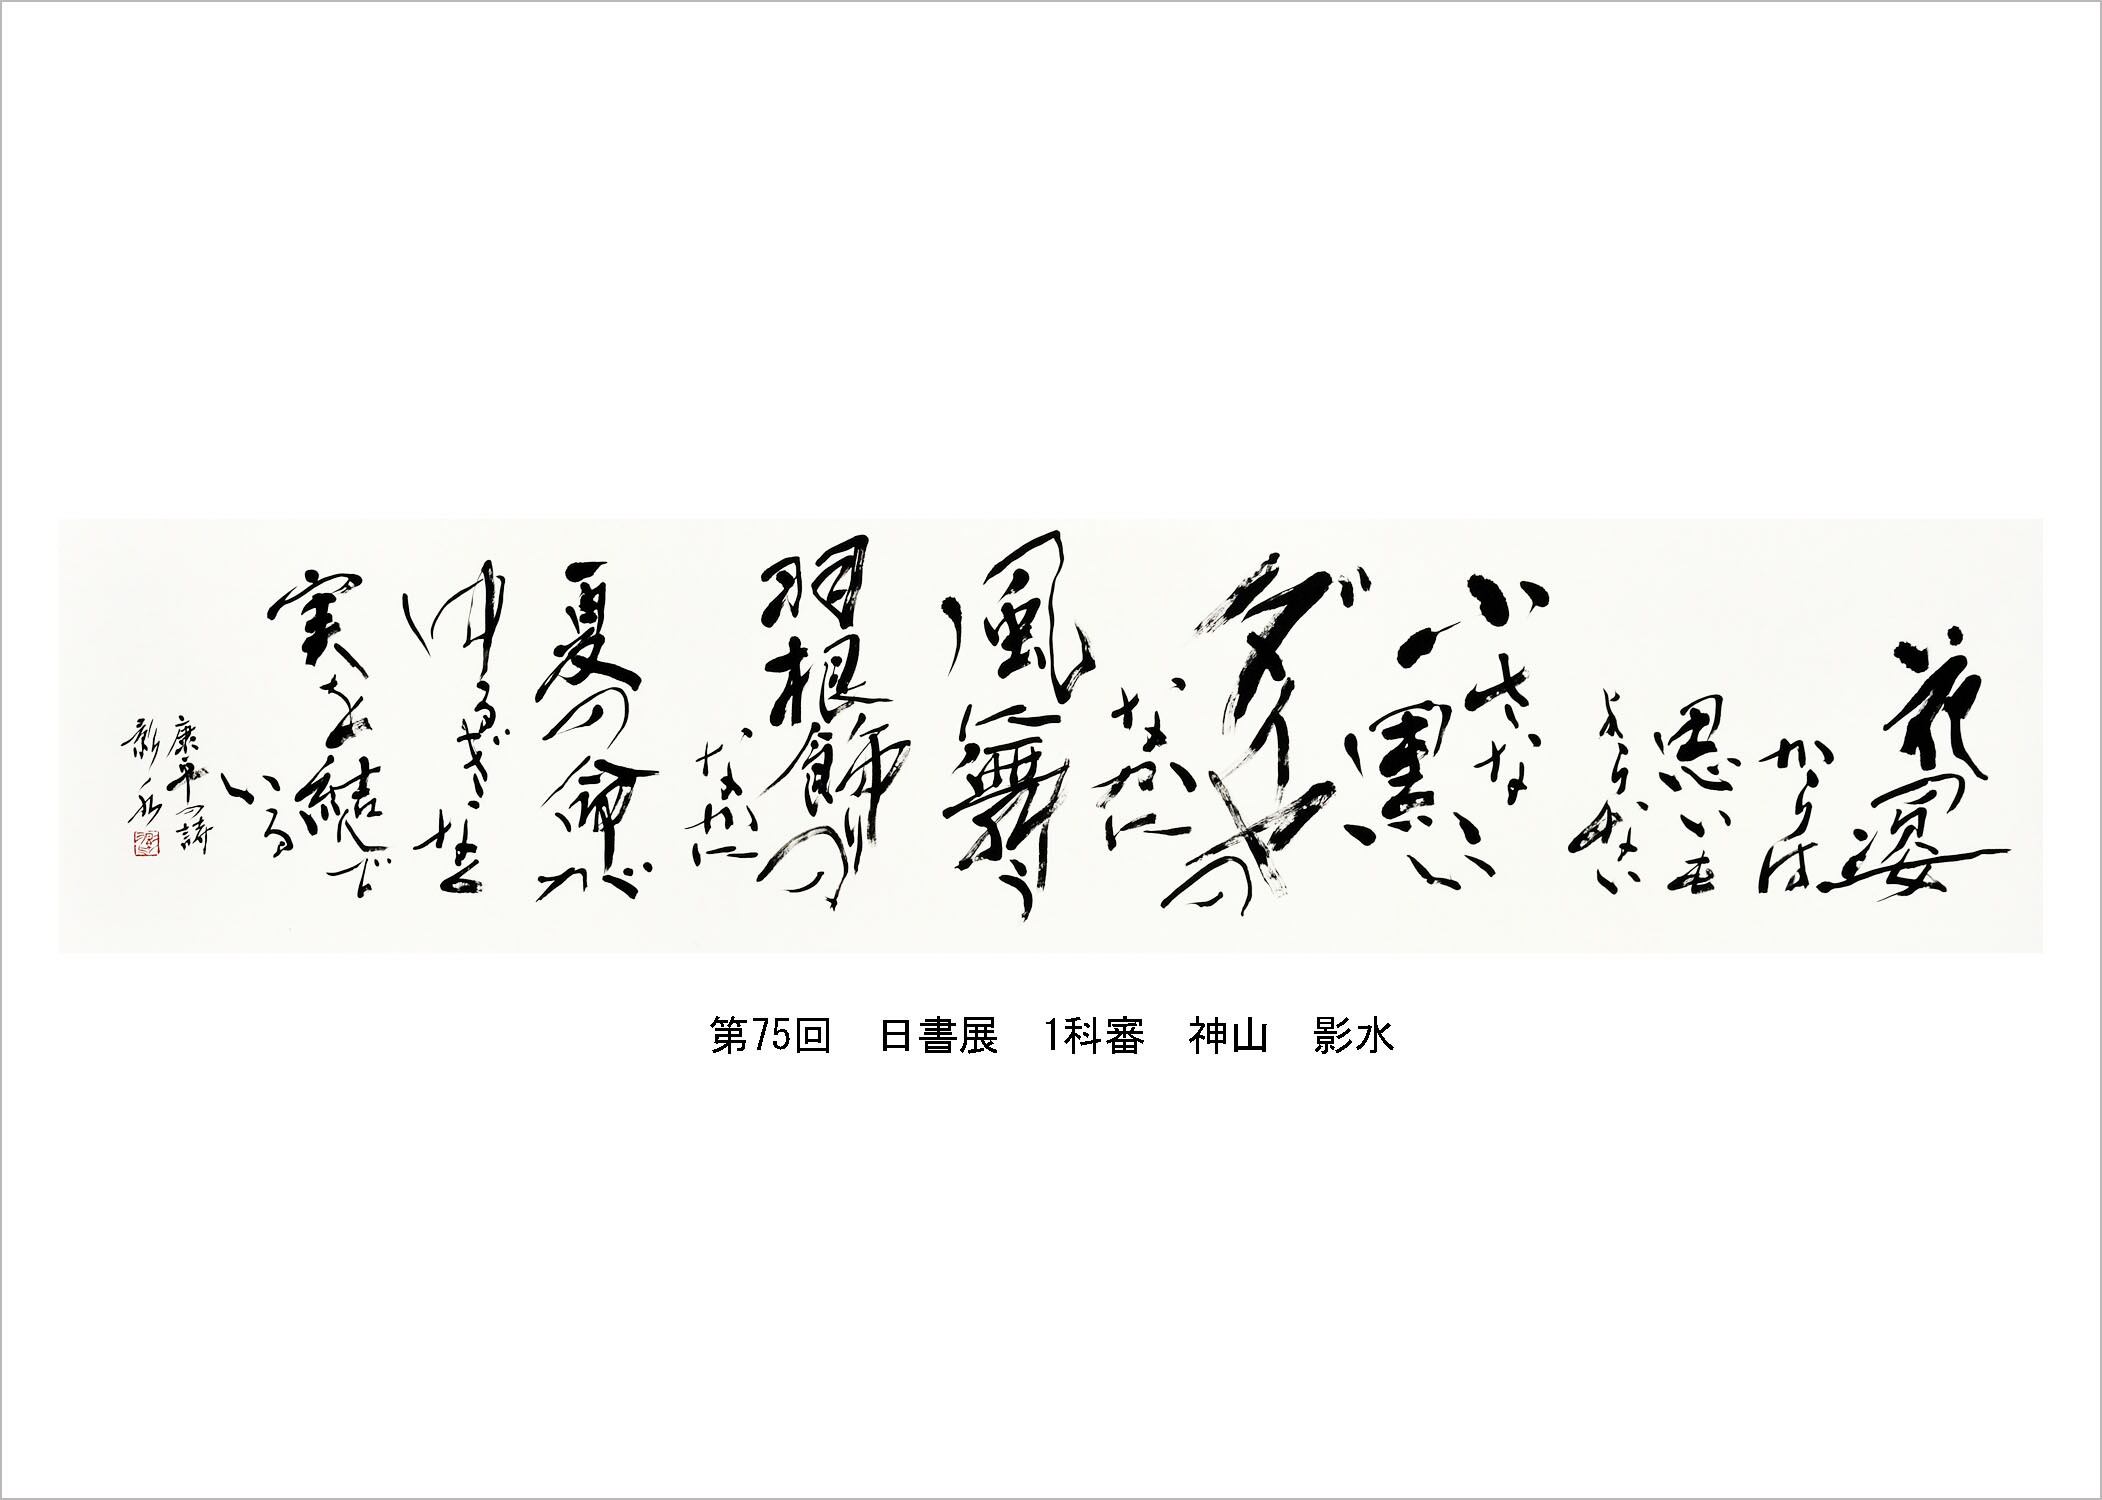 花の姿
からは
思いも
よらない
小さな
黒い
ダイヤの
なかに
風舞う
羽根飾りの
なかに
夏の命が
ゆるぎなく
実を結んで
いる
康平の詩
影水
第75回　日書展　1科審　神山　影水